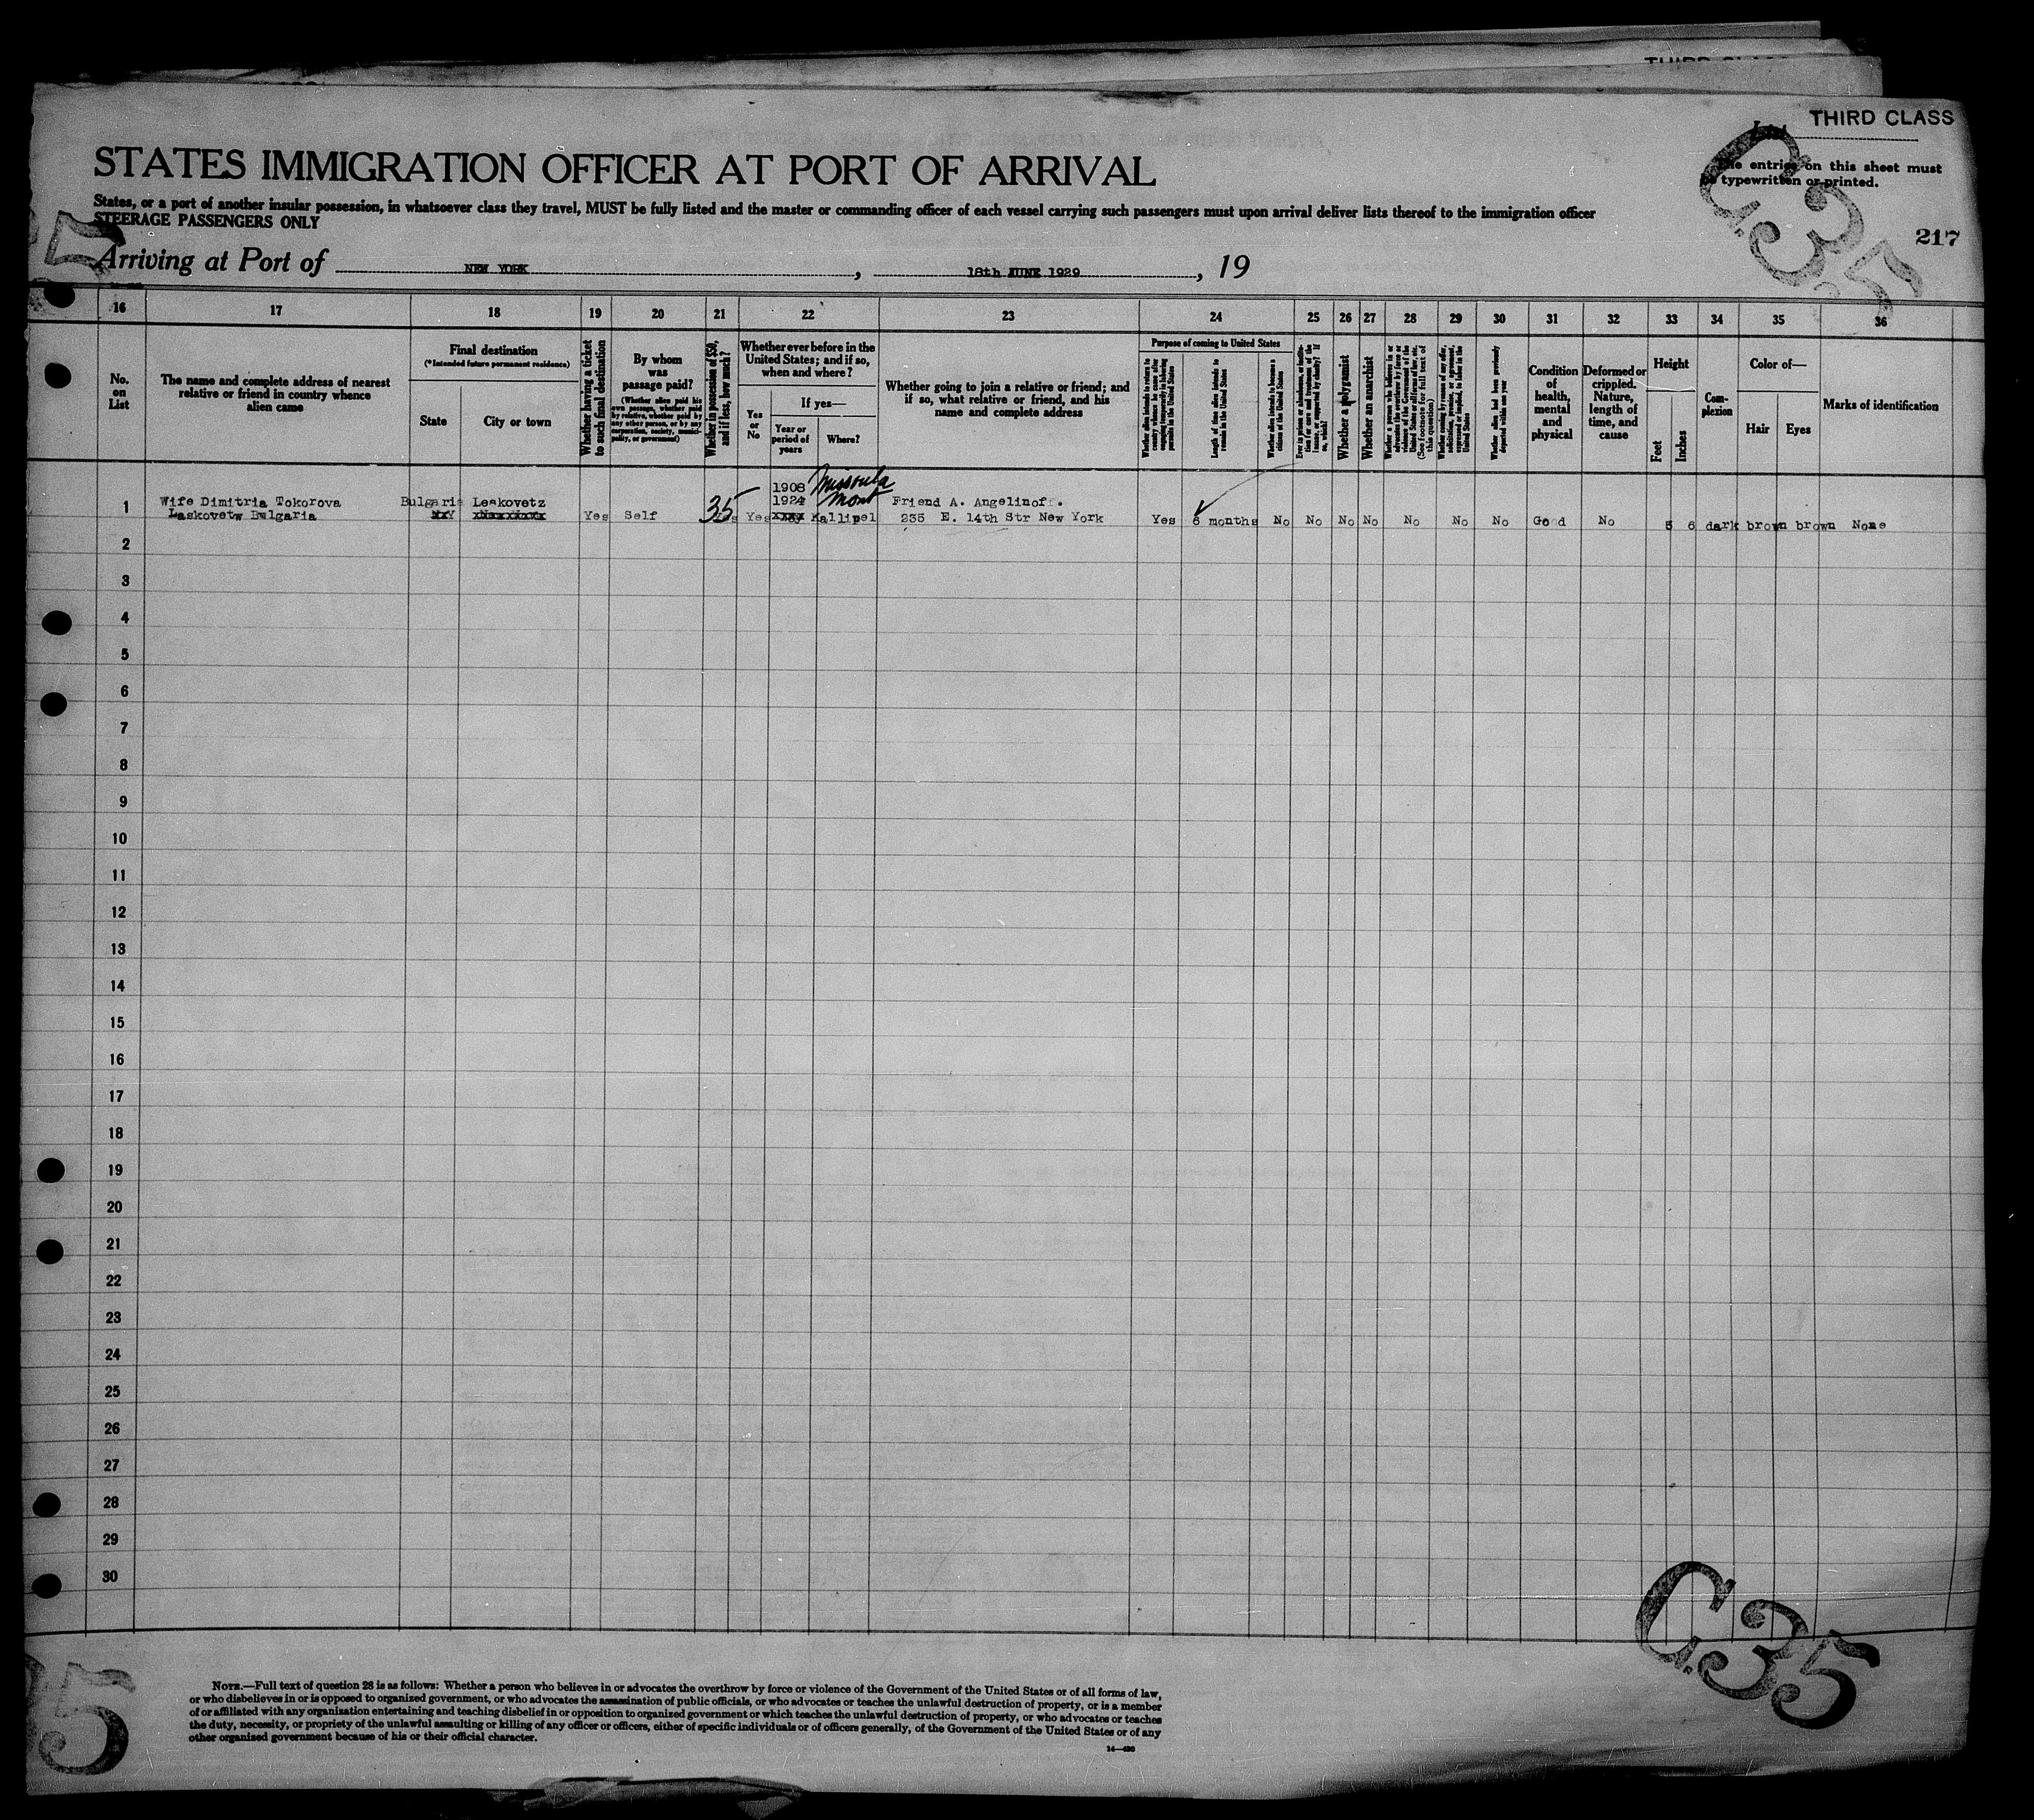 THIRD CLASS
STATES IMMIGRATION OFFICER AT PORT OF ARRIVAL
The entries on this sheet must
be typewritten or printed.
States, or a port of another insular possession, in whatsoever class they travel, MUST be fully listed and the master or commanding officer of each vessel carrying such passengers must upon arrival deliver lists thereof to the immigration officer
STEERAGE PASSENGERS ONLY
C35
217
Arriving at Port of NEW YORK, 18th JUNE 1929, 19
16 17 18 19 20 21 22 23 24 25 26 27 28 29 30 31 32 33 34 35 36
No. on List
The name and complete address of nearest
relative or friend in country whence
alien came
Final destination
(*Intended future permanent residence)
State
City or town
Whether having a ticket
to such final destination
By whom
was
passage paid?
(Whether alien paid his
own passage, whether paid
by relative, whether paid by
any other person, or by any
corporation, society, munici-
pality, or government)
Whether in possession of $50,
and if less, how much?
Whether ever before in the
United States; and if so,
when and where?
Yes or No
If yes—
Year or
period of
years
Where?
Whether going to join a relative or friend; and
if so, what relative or friend, and his
name and complete address
Purpose of coming to United States
Whether alien intends to return to
country whence he came after
engaging temporarily in laboring
pursuits in the United States
Length of time alien intends to
remain in the United States
Whether alien intends to become a
citizen of the United States
Ever in prison or almshouse, or institu-
tion for care and treatment of the
insane, or supported by charity? If
so, which?
Whether a polygamist
Whether an anarchist
Whether a person who believes in or
advocates the overthrow by force or
violence of the Government of the
United States or all forms of law, etc.
(See footnote for full text of
this question)
Whether coming by reason of any offer,
solicitation, promise, or agreement,
expressed or implied, to labor in the
United States
Whether alien had been previously
deported within one year
Condition
of
health,
mental
and
physical
Deformed or
crippled.
Nature,
length of
time, and
cause
Height
Feet
Inches
Com-
plexion
Color of—
Hair
Eyes
Marks of identification
1908 Missoula
1 Wife Dimitria Tokorova Bulgaria Leskovetz 35 1924 Mont Friend A. Angelinoff.
Laskovetw Bulgaria Yes Self Yes Yes Kallipel 235 E. 14th Str New York Yes 6 months No No No No No No No Good No 5 6 dark brown brown None
2
3
4
5
6
7
8
9
10
11
12
13
14
15
16
17
18
19
20
21
22
23
24
25
26
27
28
29
30
C35
NOTE.—Full text of question 28 is as follows: Whether a person who believes in or advocates the overthrow by force or violence of the Government of the United States or of all forms of law,
or who disbelieves in or is opposed to organized government, or who advocates the assassination of public officials, or who advocates or teaches the unlawful destruction of property, or is a member
of or affiliated with any organization entertaining and teaching disbelief in or opposition to organized government or which teaches the unlawful destruction of property, or who advocates or teaches
the duty, necessity, or propriety of the unlawful assaulting or killing of any officer or officers, either of specific individuals or of officers generally, of the Government of the United States or of any
other organized government because of his or their official character.
14—430